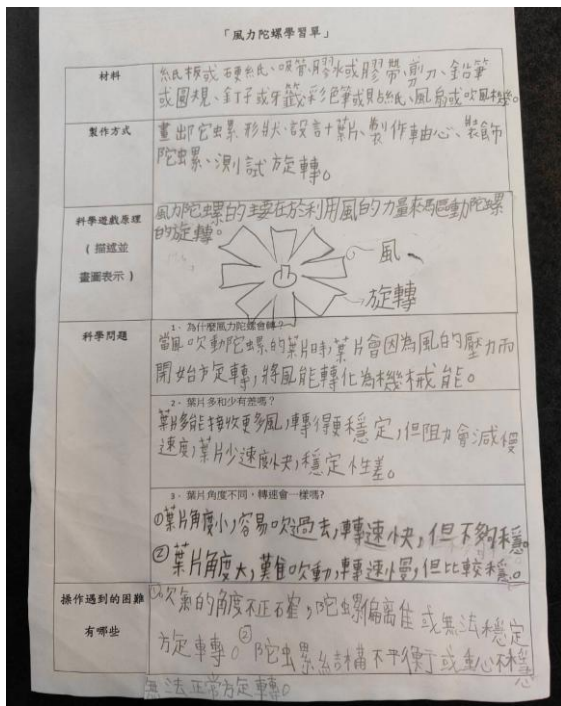 「風力陀螺學習單」
材料
紙板或硬紙、吸管、膠水或膠帶、剪刀、鉛筆
或圓規、釘子或牙籤、彩色筆或貼紙、風扇或吹風機。
製作方式
畫出陀螺形狀、設計葉片、製作軸心、裝飾
陀螺、測試旋轉。
科學遊戲原理
(描述並
畫圖表示)
風力陀螺的主要在於利用風的力量來驅動陀螺
的旋轉。
風
旋轉
科學問題
1、為什麼風力陀螺會轉?
當風吹動陀螺的葉片時,葉片會因為風的壓力而
開始旋轉,將風能轉化為機械能。
2、葉片多和少有差嗎?
葉片多能接收更多風,轉得更穩定,但阻力會減慢
速度,葉片少速度快,穩定性差。
3、葉片角度不同,轉速會一樣嗎?
①葉片角度小,容易吹過去,轉速快,但不夠穩。
②葉片角度大,難吹動,轉速慢,但比較穩。
操作遇到的困難
有哪些
①吹氣的角度不正確,陀螺偏離軸或無法穩定
旋轉。②陀螺結構不平衡或重心不穩
無法正常旋轉。